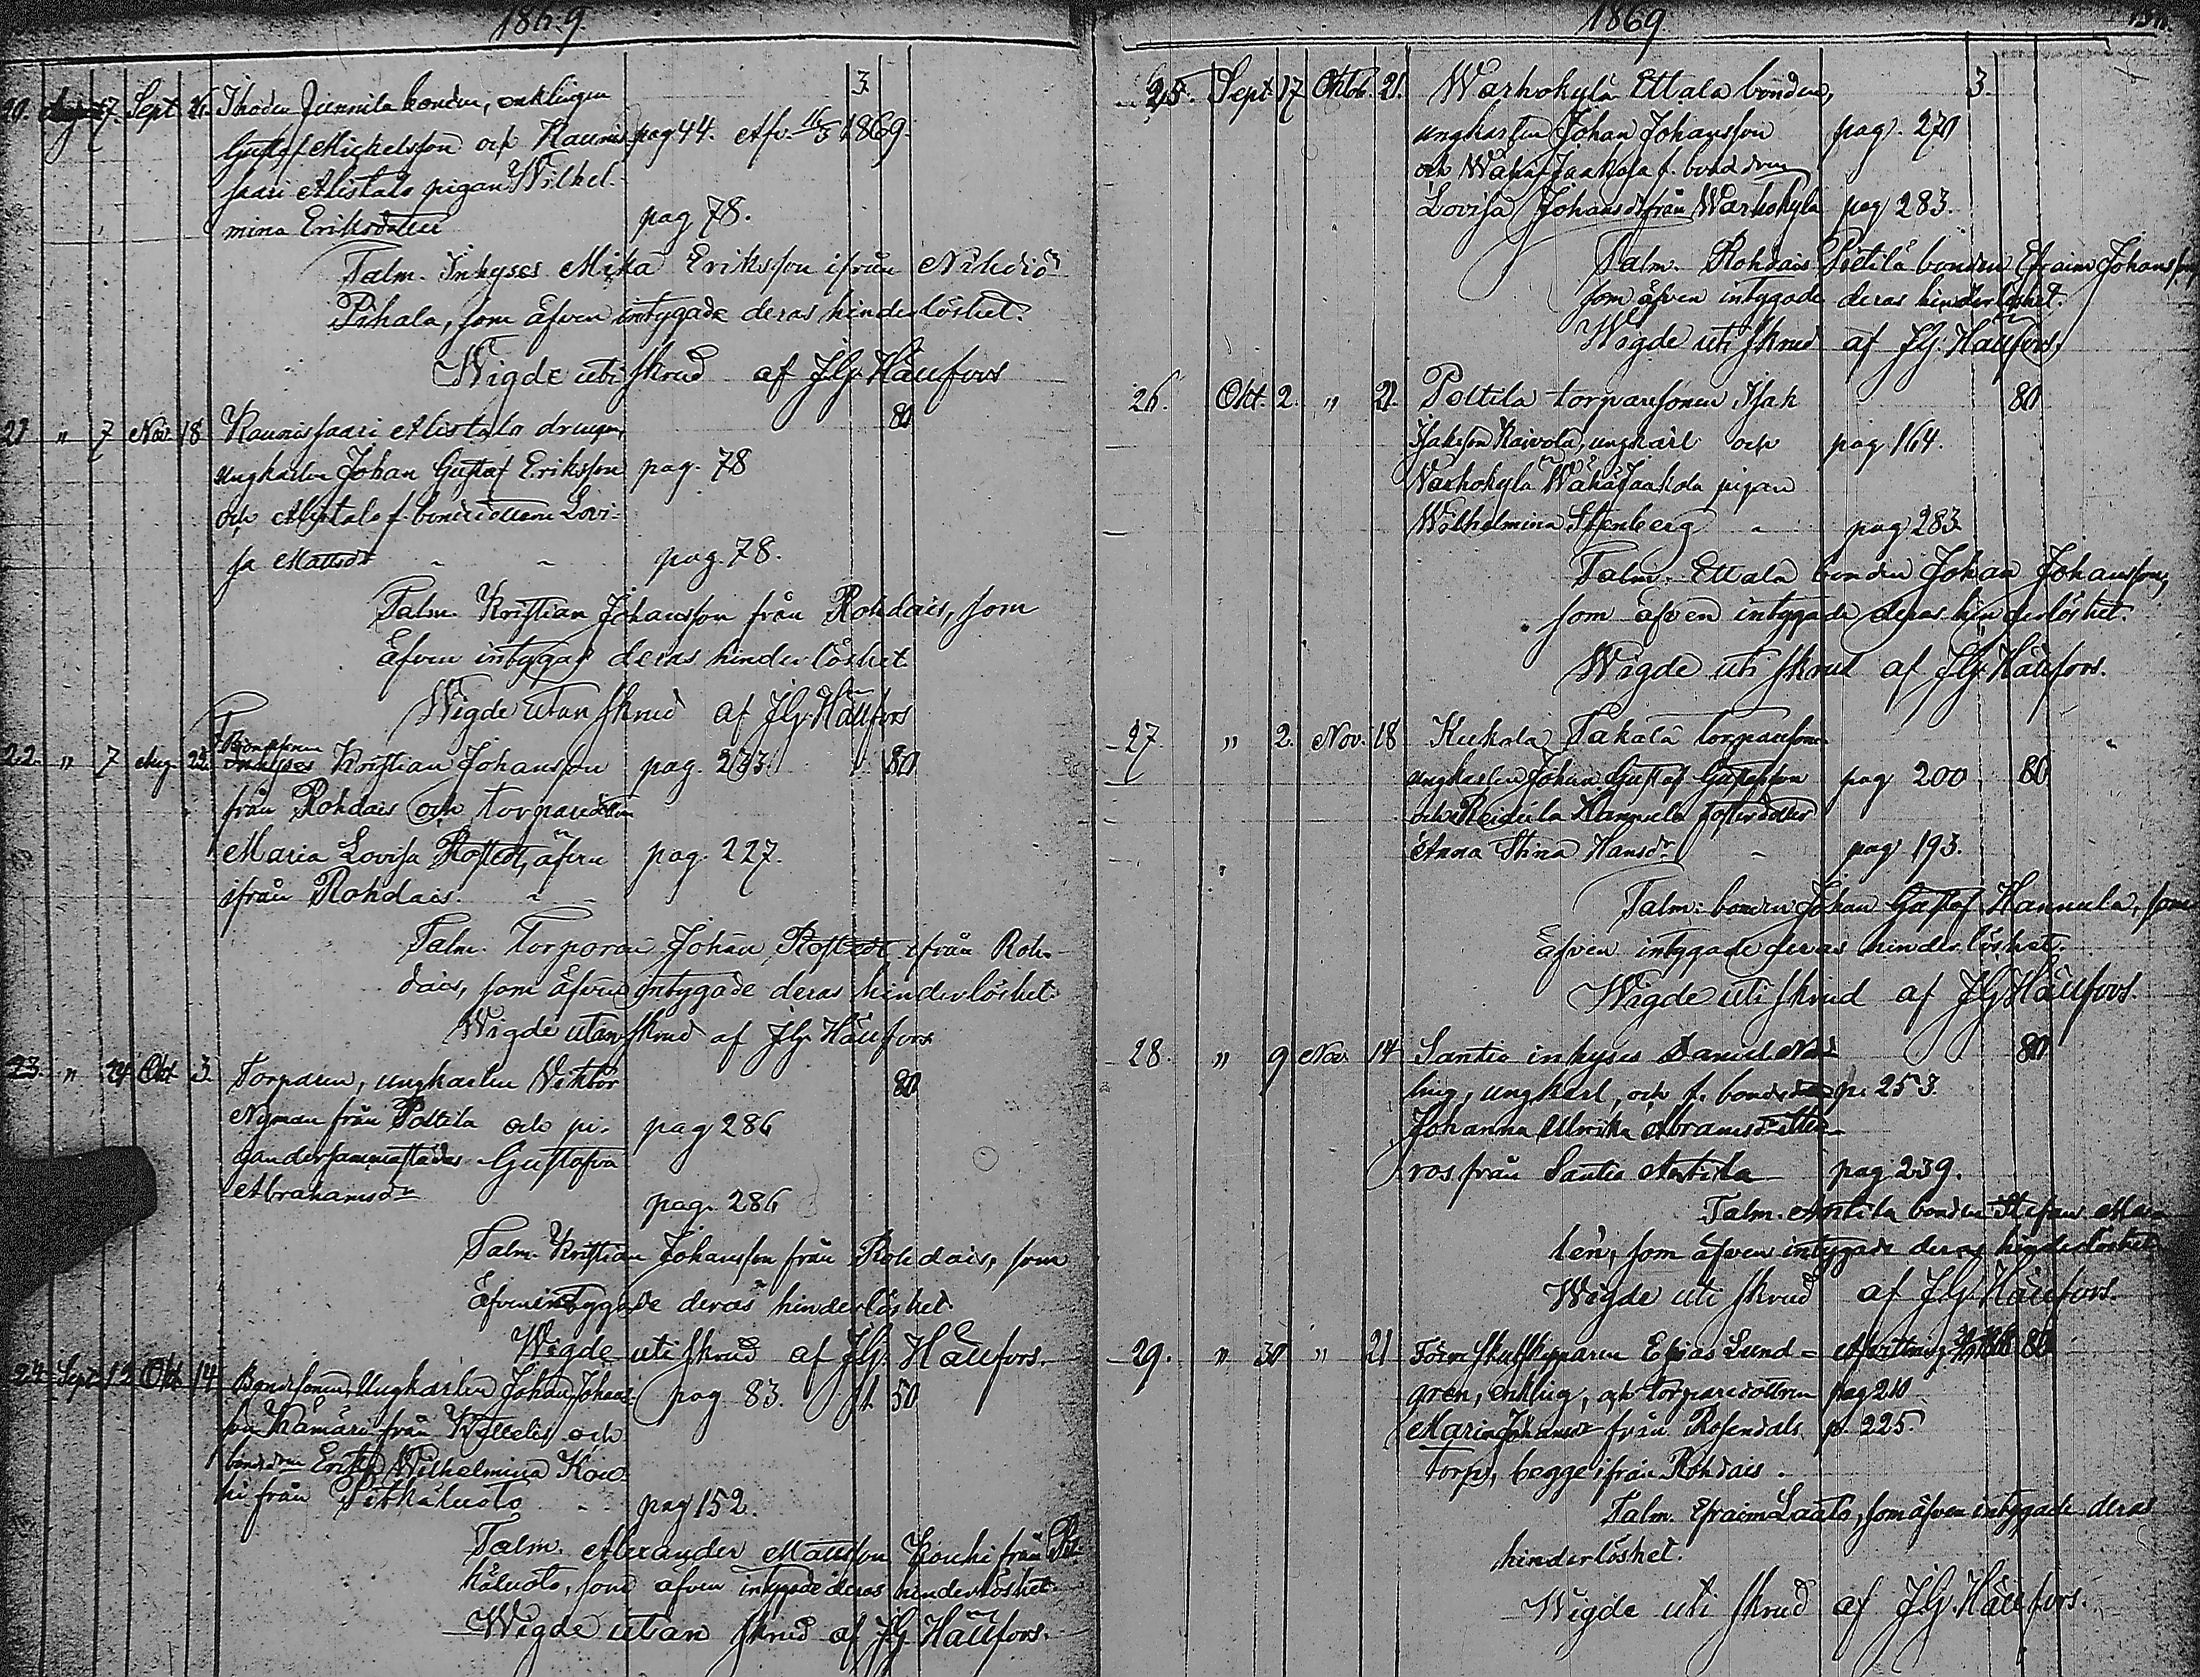 1869.
3
20. Aug. 7. Sept. 26. Ihoden Junnila bonden, enklingen
Gustaf Michelsson och Kaunis- pag 44. Afv. 16/3 1869.
saari Alistalo pigan Wilhel-
mina Eriksdotter pag 78.
Talm. Inhyses Mika Eriksson ifrån Nihdiö
Pihala, som äfven intygade deras hinderlöshet.
Wigde uti skrud af J.G. Häufors
21 " 7 Nov. 18 Kaunissaari Alistalo drengen, 80
ungkarlen Johan Gustaf Eriksson pag. 78
och Alistalo f. bondedottern Lovi-
sa Mattsdr " " pag. 78.
Talm. Kristian Johansson från Rohdais, som
äfven intygat deras hinderlöshet
Wigde utan skrud af J.G. Häufors
Bondesonen
22. " 7 Aug. 22. Inhyses Kristian Johansson pag. 233. 80
från Rohdais och torparedottern
Maria Lovisa Rostedt, äfven pag. 227.
ifrån Rohdais. " "
Talm. Torparen Johan Rostedt ifrån Roh-
dais, som äfven intygade deras hinderlöshet.
Wigde utan skrud af J.G. Häufors
23. " 24 Okt 3. Torparen, ungkarlen Viktor 80
Nyman från Poltila och pi- pag 286
gan dersammastädes Gustafva
Abrahamsdr pag. 286
Talm. Kristian Johansson från Rohdais, som
äfven intygade deras hinderlöshet.
Wigde uti skrud af J.G. Häufors.
24 Sept 12 Okt 14 Bondesonen, Ungkarlen Johan Johans- pag 83. 1. 50
son Kämäri från Kittelis och
bondedrn Erika Wilhelmina Kou-
hi från Pitkäluoto " pag 152.
Talm. Alexander Mattsson Kouhi från Pit-
käluoto, som äfven intygade deras hinderlöshet.
Wigde utan skrud af J.G. Häufors.
1869.
25. Sept. 17 Oktob. 21. Warhokylä Ettala bonden, 3.
ungkarlen Johan Johansson pag. 270
och Wähä Jaakola f. bonddrn
Lovisa Johansdr från Warhokylä pag 283.
Talm. Rohdais Pietilä bonden Efraim Johansson,
som äfven intygade deras hinderlöshet.
Wigde uti skrud af J.G. Häufors
26. Okt. 2. " 21. Poltila torparesonen Isak 80
Isaksson Kaivola, ungkarl och pag 164.
Warhokylä Wähä Jaakola pigan
Wilhelmina Stenberg " pag 283
Talm. Ettala bonden Johan Johansson,
som äfven intygade deras hinderlöshet.
Wigde uti skrud af J.G. Häufors.
27. " 2. Nov. 18 Kukola Takala torparesonen
ungkarlen Johan Gustaf Gustafsson pag 200 80
och Reidila Hannula fosterdotter
Anna Stina Hansdr " pag 193.
Talm: bonden Johan Gustaf Hannula, som
äfven intygade deras hinderlöshet.
Wigde uti skrud af J.G. Häufors.
28. " 9 Nov. 14 Santio inhyses Daniel 80
ling, ungkarl, och f. bonde p. 253.
Johanna Ulrika Abramsdotter
ros från Santio Anttila pag 239.
Talm. Anttila bonden Stefan
lén, som äfven intygade deras hinderlöshet
Wigde uti skrud af J.G. Häufors.
29. " 30 " 21 Förre skutskepparen Esaias Lund- Afvittring 80
gren, enkling, och torparedottren pag 210
Maria Johansdr från Rosendals p. 225.
torp, begge ifrån Rohdais.
Talm. Efraim Laato, som äfven intygade deras
hinderlöshet.
Wigde uti skrud af J.G. Häufors.